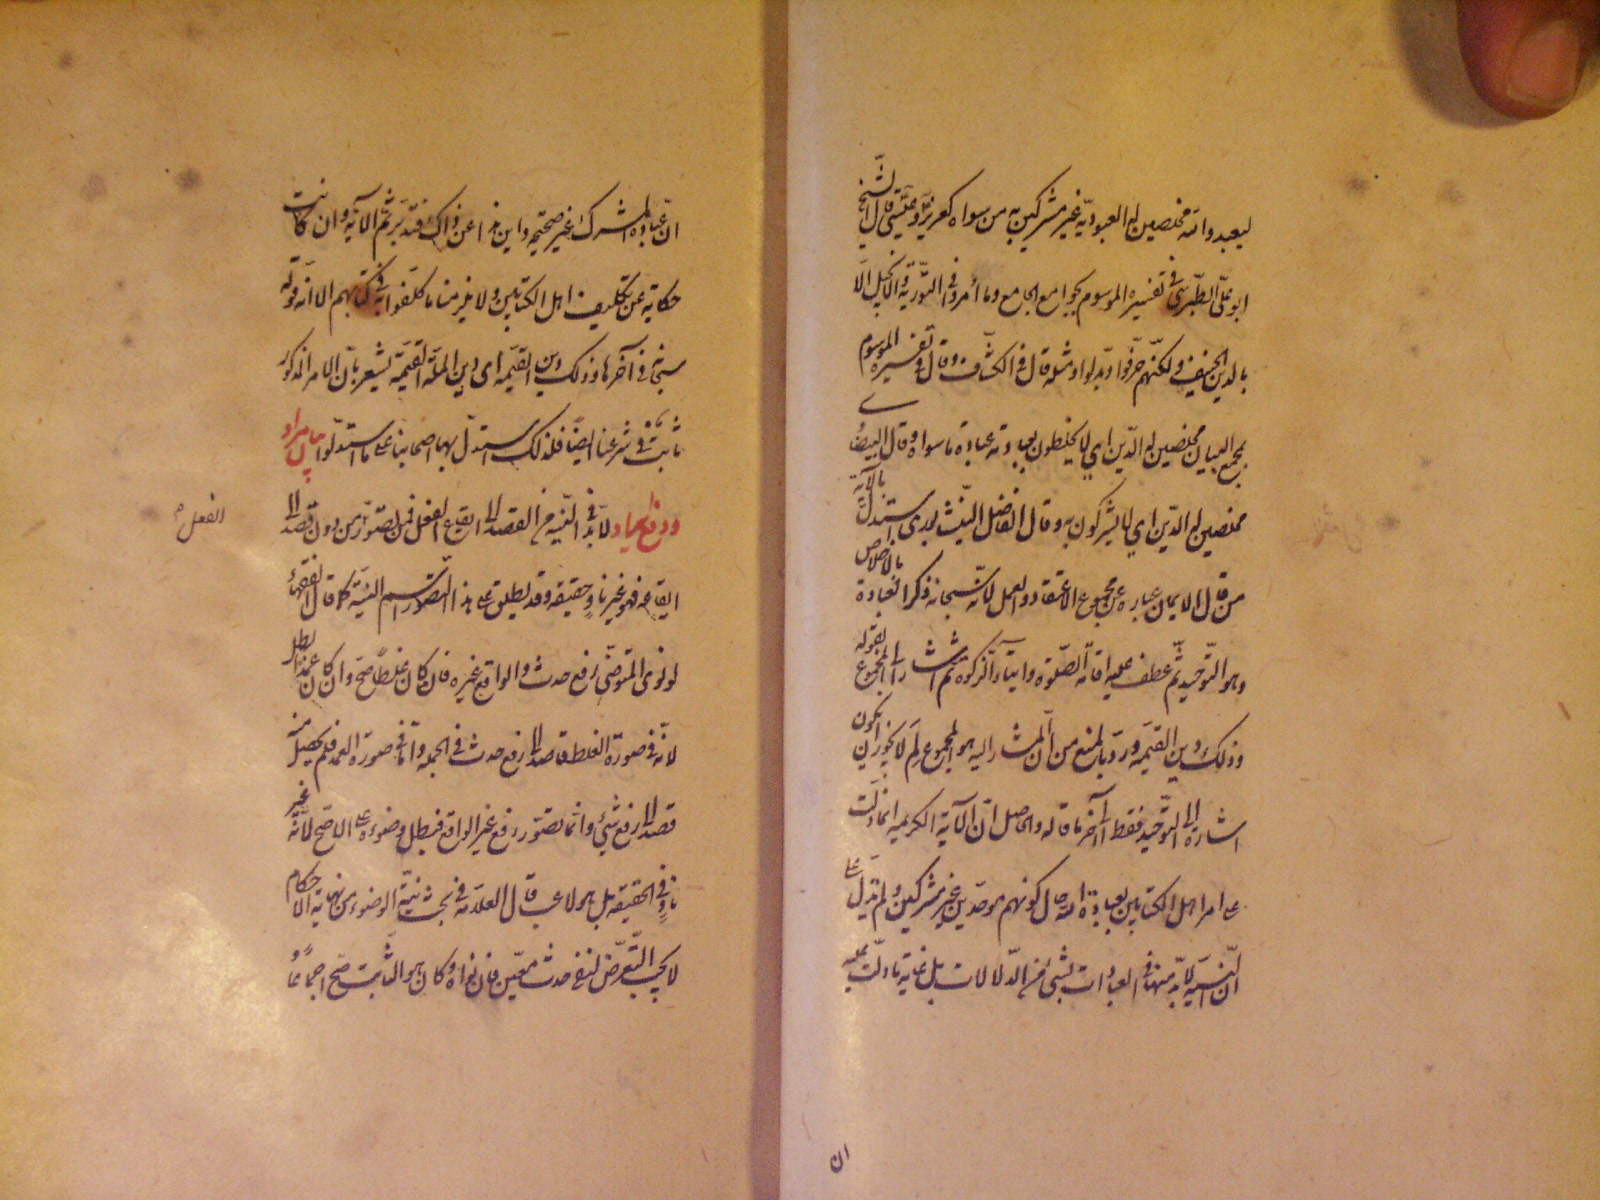 ليعبدوا الله مخلصين له العبودية غير مشركين به من سواه كعزير وعيسى قال الشيخ
ابو علي الطبرسي في تفسيره الموسوم بجوامع الجامع وما امروا في التورية والانجيل الا
بالدين الحنيفي ولكنهم حرفوا وبدلوا ومثله قال في الكشاف وقال في تفسيره الموسوم
بمجمع البيان مخلصين له الدين اي لا يخلطون بعبادته عبادة ما سواه وقال البيضاوي
مخلصين له الدين اي لا يشركون به وقال الفاضل النيشابوري استدل بالآية
من قال الايمان عبارة عن مجموع الاعتقاد والعمل لانه سبحانه ذكر العبادة بالاخلاص
وهو التوحيد ثم عطف عليه اقامة الصلوة وايتاء الزكوة ثم اشار الى المجموع بقوله
وذلك دين القيمة ورد بالمنع من ان المشار اليه هو المجموع لم لا يجوز ان يكون
اشارة الى التوحيد فقط الى آخر ما قاله والحاصل ان الآية الكريمة انما دلت
على امر اهل الكتابين بعبادة الله حال كونهم موحدين غير مشركين ولم تدل على
ان النية لابد منها في العبادات بشيء من الدلالات بل غاية ما دلت عليه
ان
ان عبادة المشرك غير صحيحة واين هذا عن ذاك فتدبر ثم الآية وان كانت
حكاية عن تكليف اهل الكتابين ولا يلزمنا ما كلفوا به في كتابهم الا انه قوله
سبحانه في آخرها وذلك دين القيمة اي دين الملة القيمة يشعر بان الامر المذكور
ثابت في شرعنا ايضا فلذلك استدل بها اصحابنا على ما استدلوا
لابد في النية من القصد الى ايقاع الفعل فمن تصوره من دون قصد الى
الفعل
ايقاعه فهو غير ناو حقيقة وقد يطلق على هذا التصور اسم النية كما قال الفقهاء
لو نوى المتوضي رفع حدث والواقع غيره فان كان غلطا صح وان كان عمدا بطل
لانه في صورة الغلط قاصد الى رفع حدث في الجملة واما في صورة العمد فلم يحصل منه
قصد الى رفع شيء وانما تصور رفع غير الواقع فبطل وضوءه على الاصح لانه غير
ناو في الحقيقة بل هو لاعب قال العلامة في بحث نية الوضوء من نهاية الاحكام
لا يجب التعرض لنفي حدث معين فان نواه وكان هو الثابت صح اجماعا